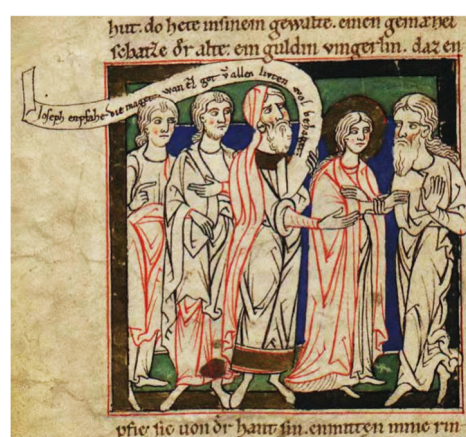 hut. do hete in sinem gewalte. einen gemæhel
schatze d͛r alte: ein guldin vingerlin. daz en
Ioseph enpfahe die maget wan el got vñ allen livten wol behaget
pfie sie von d͛r hant sin. enmitten inne rin-